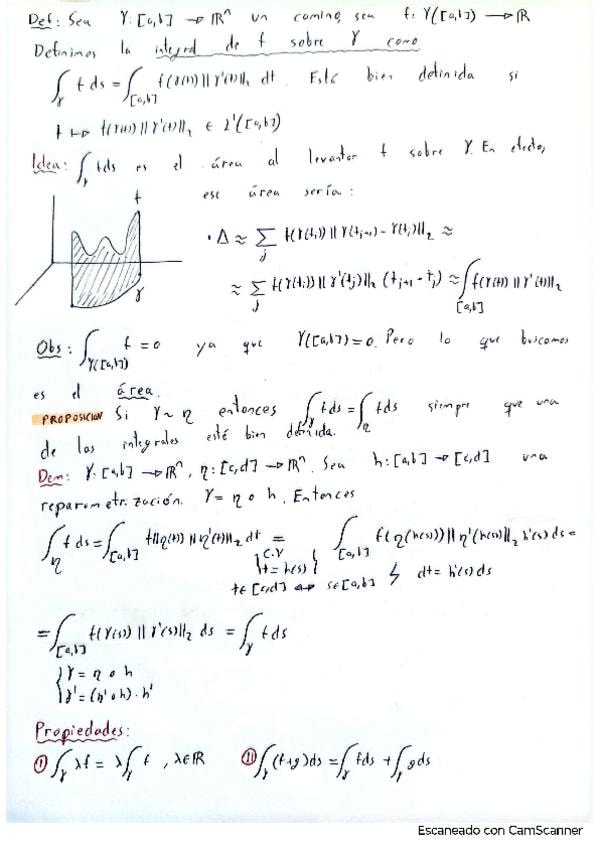 Def: Sea γ: [a,b] → ℝⁿ un camino, sea f: γ([a,b]) → ℝ
Definimos la integral de f sobre γ como
∫_γ f ds = ∫_[a,b] f(γ(t)) ||γ'(t)||₂ dt. Está bien definida si
t ↦ f(γ(t)) ||γ'(t)||₂ ∈ L¹([a,b])
Idea: ∫_γ f ds es el área al levantar f sobre γ. En efecto,
ese área sería:
f
γ
· Δ ≈ ∑_j f(γ(t_j)) ||γ(t_{j+1}) - γ(t_j)||₂ ≈
≈ ∑_j f(γ(t_j)) ||γ'(t_j)||₂ (t_{j+1} - t_j) ≈ ∫_[a,b] f(γ(t)) ||γ'(t)||₂
Obs: ∫_γ([a,b]) f = 0 ya que γ([a,b]) = 0. Pero lo que buscamos
es el área.
PROPOSICION Si γ ~ η entonces ∫_γ f ds = ∫_η f ds siempre que una
de las integrales esté bien definida.
Dem: γ: [a,b] → ℝⁿ, η: [c,d] → ℝⁿ. Sea h: [a,b] → [c,d] una
reparametrización. γ = η ∘ h. Entonces
∫_η f ds = ∫_[a,b] f(η(t)) ||η'(t)||₂ dt = ∫_[a,b] f(η(h(s))) ||η'(h(s))||₂ h'(s) ds =
C.V
t = h(s)
t ∈ [c,d] ↔ s ∈ [a,b] dt = h'(s) ds
= ∫_[a,b] f(γ(s)) ||γ'(s)||₂ ds = ∫_γ f ds
γ = η ∘ h
γ' = (η' ∘ h) · h'
Propiedades:
Ⓘ ∫_γ λf = λ ∫_γ f , λ ∈ ℝ Ⓘⓘ ∫_γ (f+g) ds = ∫_γ f ds + ∫_γ g ds
Escaneado con CamScanner